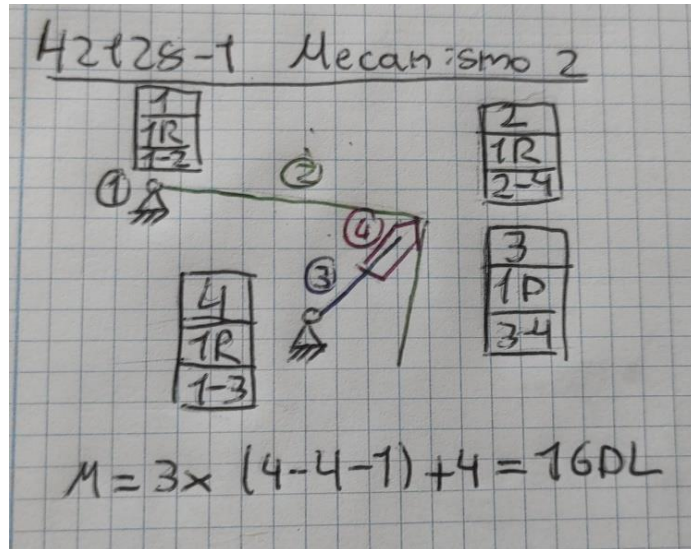 42128-1 Mecanismo 2
1
1R
1-2
①
②
2
1R
2-4
④
③
3
1P
3-4
4
1R
1-3
M = 3x (4-4-1) +4 = 1GDL